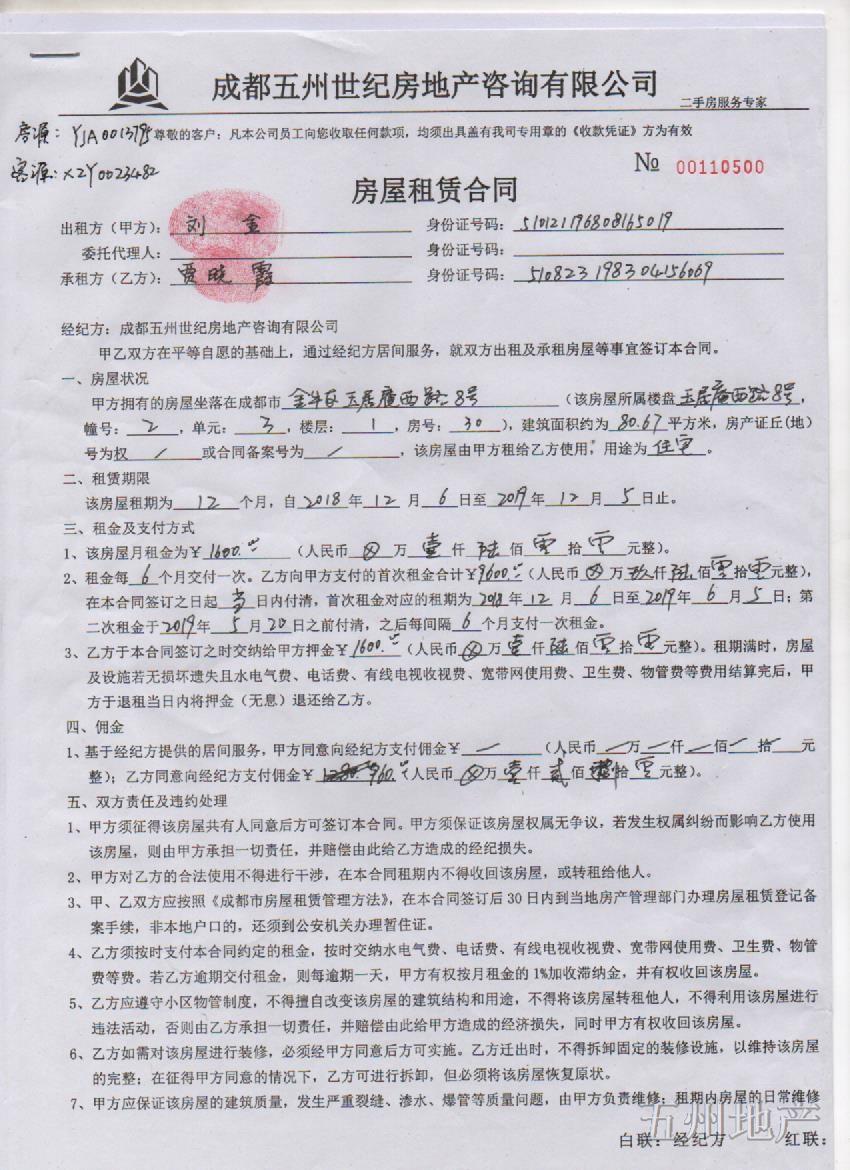 成都五州世纪房地产咨询有限公司
二手房服务专家
房源：YJA0013795 尊敬的客户：凡本公司员工向您收取任何款项，均须出具盖有我司专用章的《收款凭证》方为有效
客源：XZY0023482
№ 00110500
房屋租赁合同
出租方（甲方）：刘金 身份证号码：510121196808165019
委托代理人： 身份证号码：
承租方（乙方）：贾晓霞 身份证号码：510823198304156069
经纪方：成都五州世纪房地产咨询有限公司
甲乙双方在平等自愿的基础上，通过经纪方居间服务，就双方出租及承租房屋等事宜签订本合同。
一、房屋状况
甲方拥有的房屋坐落在成都市金牛区玉居庵西路8号（该房屋所属楼盘玉居庵西路8号，
幢号：2，单元：3，楼层：1，房号：30），建筑面积约为80.67平方米，房产证丘(地)
号为权/或合同备案号为/，该房屋由甲方租给乙方使用，用途为住宅。
二、租赁期限
该房屋租期为12个月，自2018年12月6日至2019年12月5日止。
三、租金及支付方式
1、该房屋月租金为￥1600.00（人民币⊗万壹仟陆佰零拾零元整）。
2、租金每6个月交付一次。乙方向甲方支付的首次租金合计￥9600.00（人民币⊗万玖仟陆佰零拾零元整），
在本合同签订之日起当日内付清，首次租金对应的租期为2018年12月6日至2019年6月5日；第
二次租金于2019年5月20日之前付清，之后每间隔6个月支付一次租金。
3、乙方于本合同签订之时交纳给甲方押金￥1600.00（人民币⊗万壹仟陆佰零拾零元整）。租期满时，房屋
及设施若无损坏遗失且水电气费、电话费、有线电视收视费、宽带网使用费、卫生费、物管费等费用结算完后，甲
方于退租当日内将押金（无息）退还给乙方。
四、佣金
1、基于经纪方提供的居间服务，甲方同意向经纪方支付佣金￥/（人民币/万/仟/佰/拾/元
整）；乙方同意向经纪方支付佣金￥960.00（人民币⊗万壹仟贰佰拾零元整）。
五、双方责任及违约处理
1、甲方须征得该房屋共有人同意后方可签订本合同。甲方须保证该房屋权属无争议，若发生权属纠纷而影响乙方使用
该房屋，则由甲方承担一切责任，并赔偿由此给乙方造成的经纪损失。
2、甲方对乙方的合法使用不得进行干涉，在本合同租期内不得收回该房屋，或转租给他人。
3、甲、乙双方应按照《成都市房屋租赁管理方法》，在本合同签订后30日内到当地房产管理部门办理房屋租赁登记备
案手续，非本地户口的，还须到公安机关办理暂住证。
4、乙方须按时支付本合同约定的租金，按时交纳水电气费、电话费、有线电视收视费、宽带网使用费、卫生费、物管
费等费。若乙方逾期交付租金，则每逾期一天，甲方有权按月租金的1%加收滞纳金，并有权收回该房屋。
5、乙方应遵守小区物管制度，不得擅自改变该房屋的建筑结构和用途，不得将该房屋转租他人，不得利用该房屋进行
违法活动，否则由乙方承担一切责任，并赔偿由此给甲方造成的经济损失，同时甲方有权收回该房屋。
6、乙方如需对该房屋进行装修，必须经甲方同意后方可实施。乙方迁出时，不得拆卸固定的装修设施，以维持该房屋
的完整；在征得甲方同意的情况下，乙方可进行拆卸，但必须将该房屋恢复原状。
7、甲方应保证该房屋的建筑质量，发生严重裂缝、渗水、爆管等质量问题，由甲方负责维修；租期内房屋的日常维修
五州地产
白联：经纪方 红联：